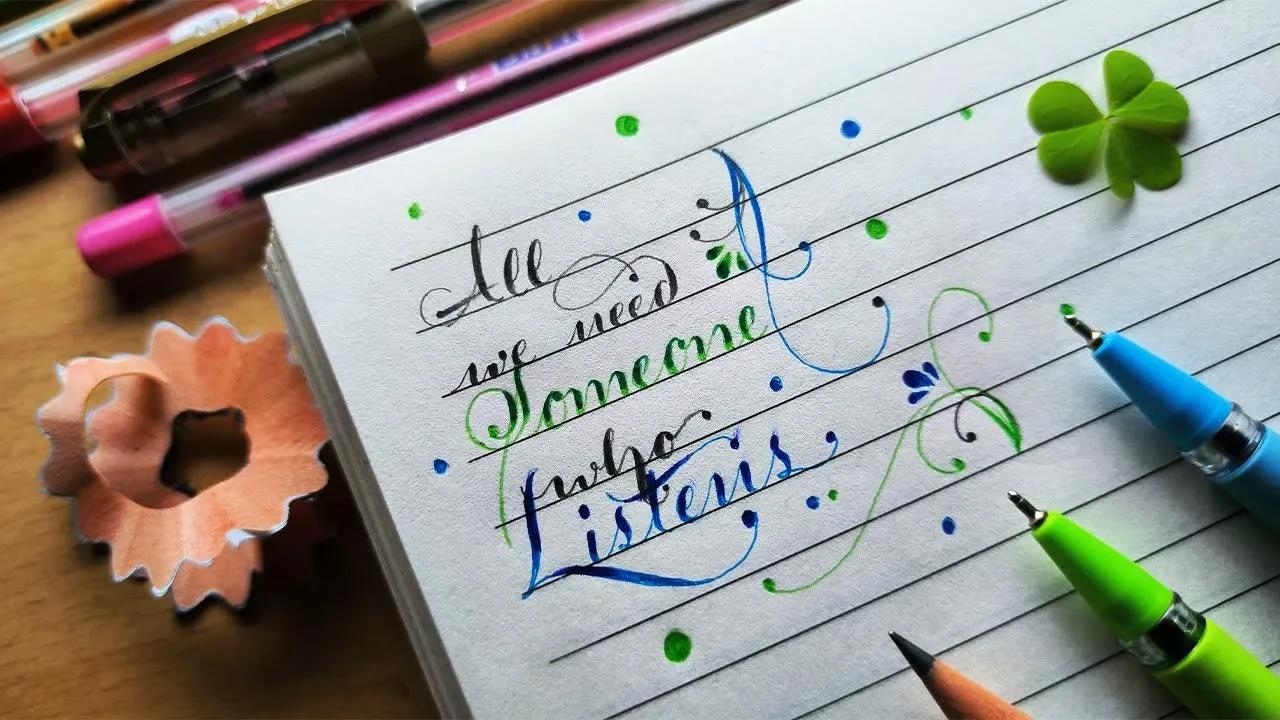 All
we need
Someone
who
Listens